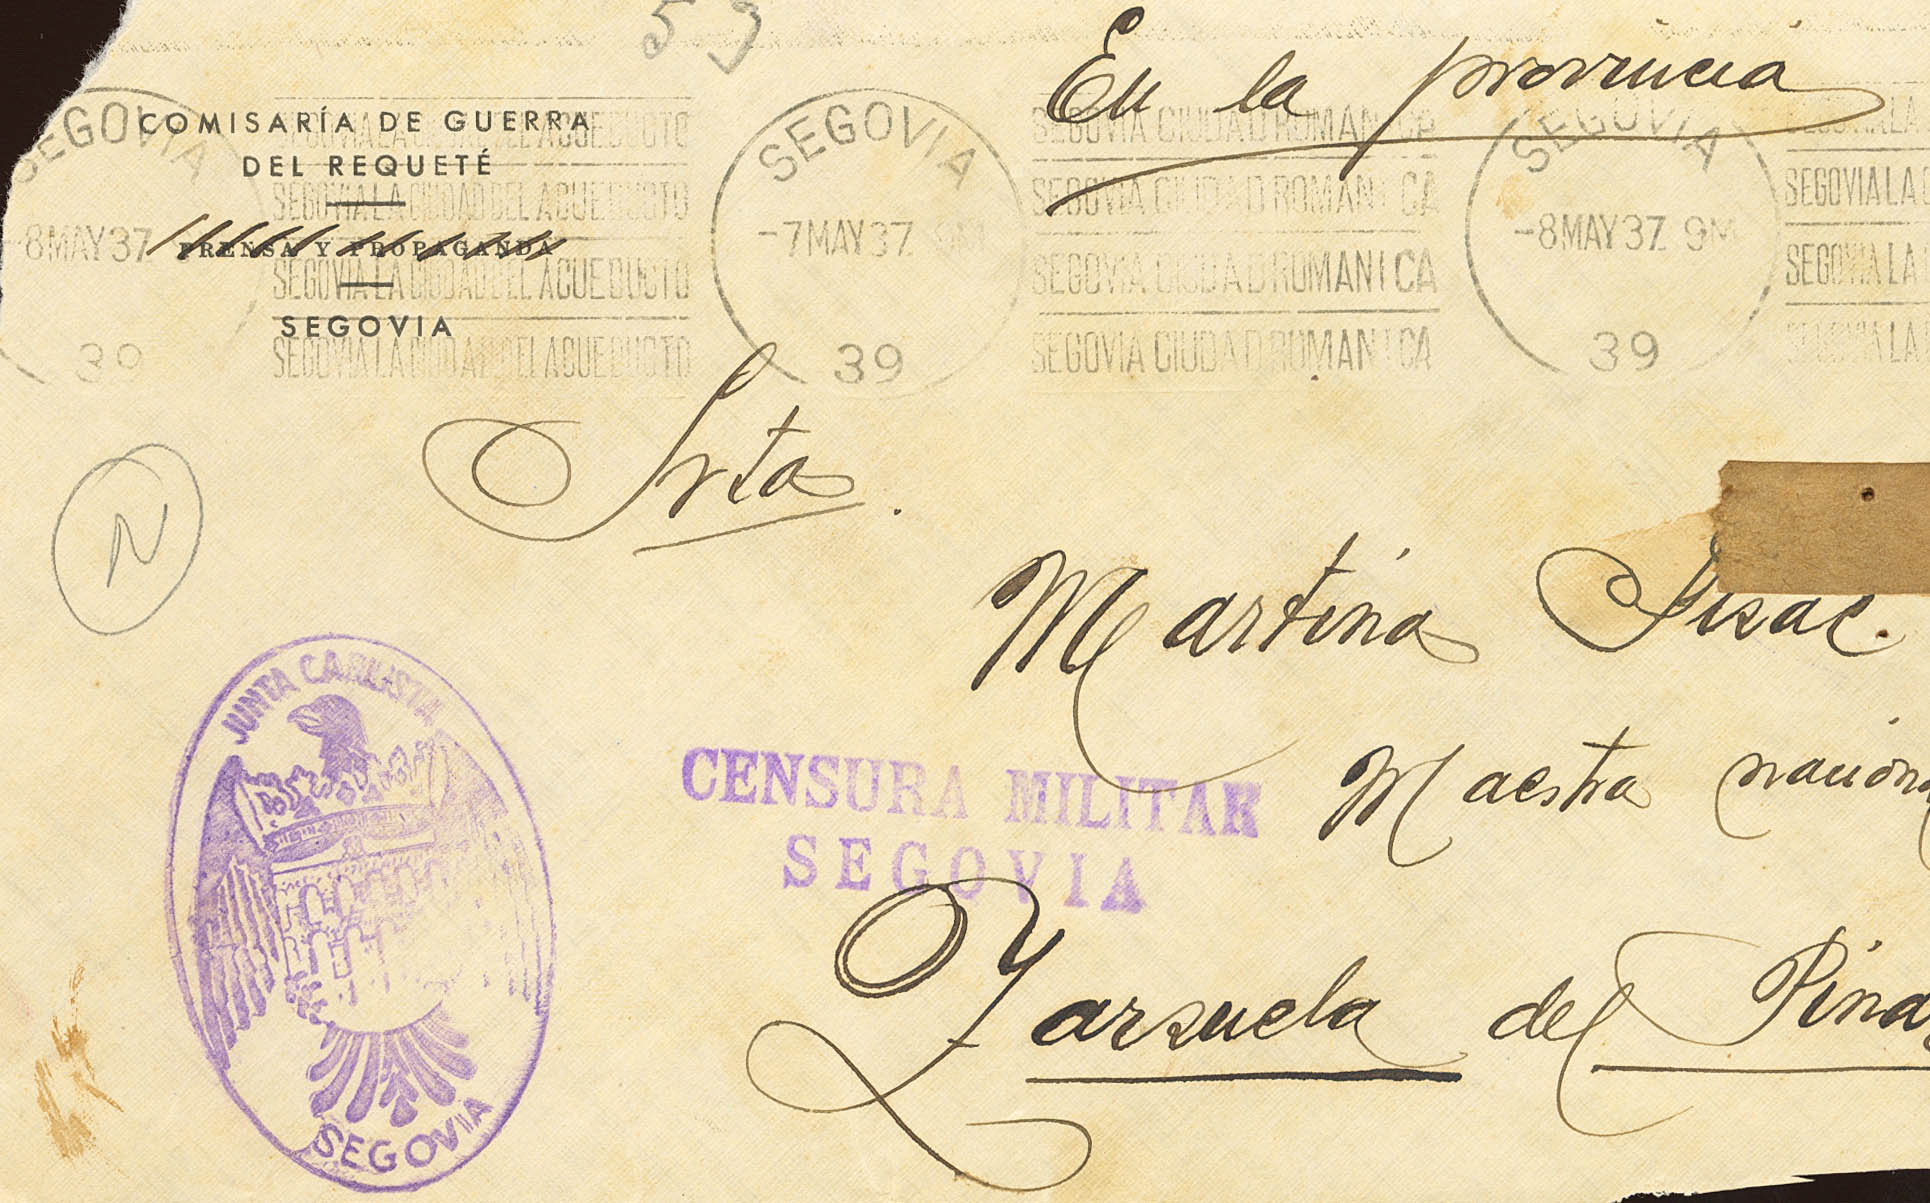 53
En la provincia
COMISARÍA DE GUERRA
DEL REQUETÉ
PRENSA Y PROPAGANDA
SEGOVIA
SEGOVIA
-8MAY37
39
SEGOVIA LA CIUDAD DEL ACUEDUCTO
SEGOVIA LA CIUDAD DEL ACUEDUCTO
SEGOVIA LA CIUDAD DEL ACUEDUCTO
SEGOVIA LA CIUDAD DEL ACUEDUCTO
SEGOVIA
-7MAY37 9M
39
SEGOVIA CIUDAD ROMANICA
SEGOVIA CIUDAD ROMANICA
SEGOVIA CIUDAD ROMANICA
SEGOVIA CIUDAD ROMANICA
SEGOVIA
-8MAY37 9M
39
SEGOVIA LA
SEGOVIA LA
SEGOVIA LA
SEGOVIA LA
Srta.
N
Martina
Maestra naciona
Zarzuela del Pinar
JUNTA CARLISTA
SEGOVIA
CENSURA MILITAR
SEGOVIA